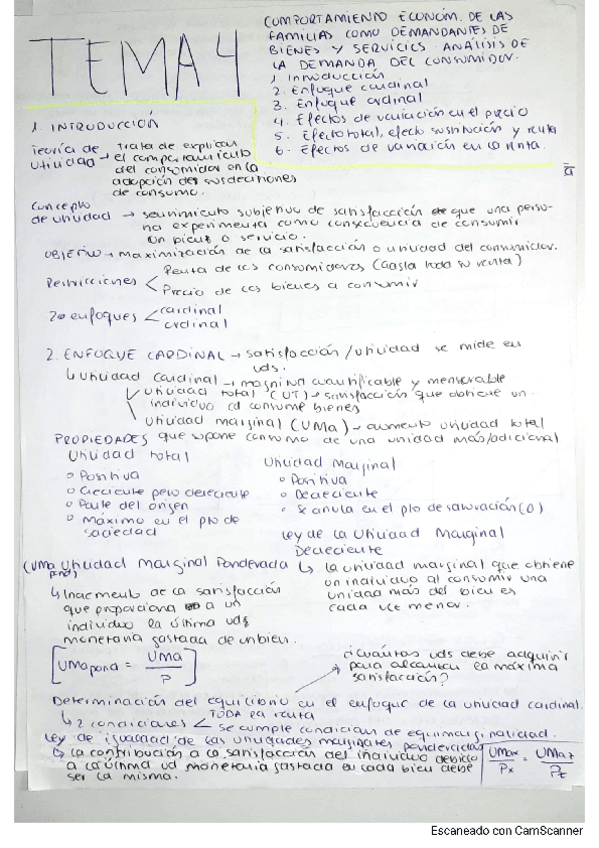 TEMA 4
COMPORTAMIENTO ECONÓM. DE LAS
FAMILIAS COMO DEMANDANTES DE
BIENES Y SERVICIOS. ANÁLISIS DE
LA DEMANDA DEL CONSUMIDOR.
1. Introducción
2. Enfoque cardinal
3. Enfoque ordinal
4. Efectos de variación en el precio
5. Efecto total, efecto sustitución y renta
6. Efectos de variación en la renta.
1. INTRODUCCIÓN
Teoría de utilidad → trata de explicar
el comportamiento
del consumidor en la
adopción de sus decisiones
de consumo.
Concepto
de utilidad → sentimiento subjetivo de satisfacción que una perso-
na experimenta como consecuencia de consumir
un bien o servicio.
OBJETIVO → Maximización de la satisfacción o utilidad del consumidor.
Restricciones < Renta de los consumidores (Gasta toda su renta)
Precio de los bienes a consumir
2 enfoques < cardinal
ordinal
2. ENFOQUE CARDINAL → satisfacción/utilidad se mide en
uds.
↳ Utilidad cardinal → magnitud cuantificable y mensurable
Utilidad total (UT) → satisfacción que obtiene un
individuo al consumir bienes
Utilidad marginal (UMa) → aumento utilidad total
que supone consumo de una unidad más/adicional
PROPIEDADES
Utilidad total
○ Positiva
○ Creciente pero decreciente
○ Parte del origen
○ Máximo en el pto de
saciedad
Utilidad Marginal
○ Positiva
○ Decreciente
○ Se anula en el pto de saturación (0)
Ley de la Utilidad Marginal
Decreciente
↳ la utilidad marginal que obtiene
un individuo al consumir una
unidad más del bien es
cada vez menor.
(UMa pond) Utilidad Marginal Ponderada
↳ Incremento de la satisfacción
que proporciona a un
individuo la última uds
monetaria gastada de un bien.
[UMa pond = UMa / P]
¿Cuántas uds debe adquirir
para alcanzar la máxima
satisfacción?
Determinación del equilibrio en el enfoque de la utilidad cardinal.
↳ 2 condiciones < TODA la renta
se cumple condición de equimarginalidad.
Ley de igualdad de las utilidades marginales ponderadas
↳ La contribución a la satisfacción del individuo debido
a la última ud monetaria gastada en cada bien debe
ser la misma.
UMax / Px = UMaz / Pz
Escaneado con CamScanner